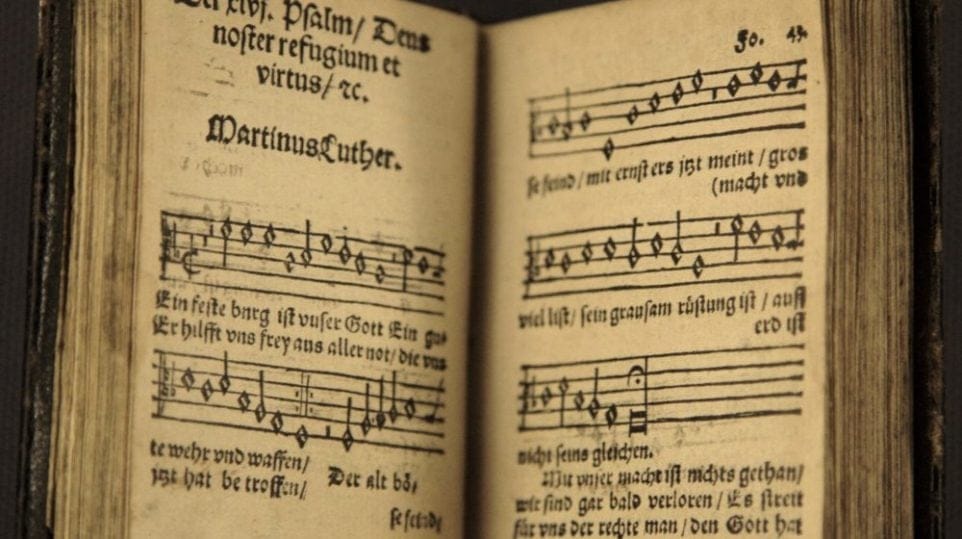 Der xlvj. Psalm/ Deus
noster refugium et
virtus/ ꝛc.
Martinus Luther.
Ein feste burg ist vnser Gott Ein gu⸗
Er hilfft vns frey aus aller not/ die vns
te wehr vnd waffen/
jtzt hat be troffen/ Der alt bö⸗
se feind/
Fo. 43.
se feind/ mit ernst ers jtzt meint / gros
(macht vnd
viel list/ sein grausam rüstung ist / auff
erd ist
nicht seins gleichen.
Mit vnser macht ist nichts gethan/
wir sind gar bald verloren / Es streit
für vns der rechte man / den Gott hat